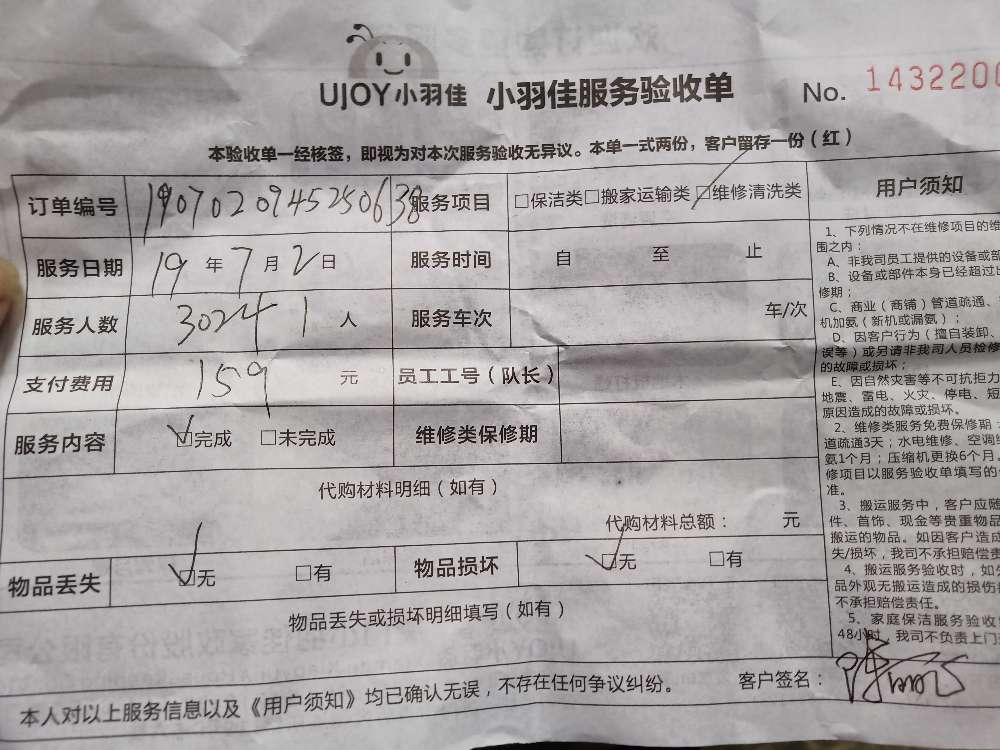 UJOY小羽佳 小羽佳服务验收单 No. 1432200
本验收单一经核签，即视为对本次服务验收无异议。本单一式两份，客户留存一份（红）
订单编号 19070209452506138 服务项目 □保洁类□搬家运输类□维修清洗类
服务日期 19 年 7 月 2 日 服务时间 自 至 止
服务人数 3024 1 人 服务车次 车/次
支付费用 159 元 员工工号（队长）
服务内容 ☑完成 □未完成 维修类保修期
代购材料明细（如有）
代购材料总额： 元
物品丢失 ☑无 □有 物品损坏 ☑无 □有
物品丢失或损坏明细填写（如有）
本人对以上服务信息以及《用户须知》均已确认无误，不存在任何争议纠纷。 客户签名：
用户须知
1、下列情况不在维修项目的维
围之内：
A、非我司员工提供的设备或部
B、设备或部件本身已经超过
修期；
C、商业（商铺）管道疏通、
机加氨（新机或漏氨）；
D、因客户行为（擅自装卸、
误等）或另请非我司人员检修
的故障或损坏；
E、因自然灾害等不可抗拒力
地震、雷电、火灾、停电、短
原因造成的故障或损坏。
2、维修类服务免费保修期：
道疏通3天；水电维修、空调
氨1个月；压缩机更换6个月。
修项目以服务验收单填写的
准。
3、搬运服务中，客户应随
件、首饰、现金等贵重物品
搬运的物品。如因客户造成
失/损坏，我司不承担赔偿责
4、搬运服务验收时，如
品外观无搬运造成的损伤
不承担赔偿责任。
5、家庭保洁服务验收
48小时，我司不负责上门